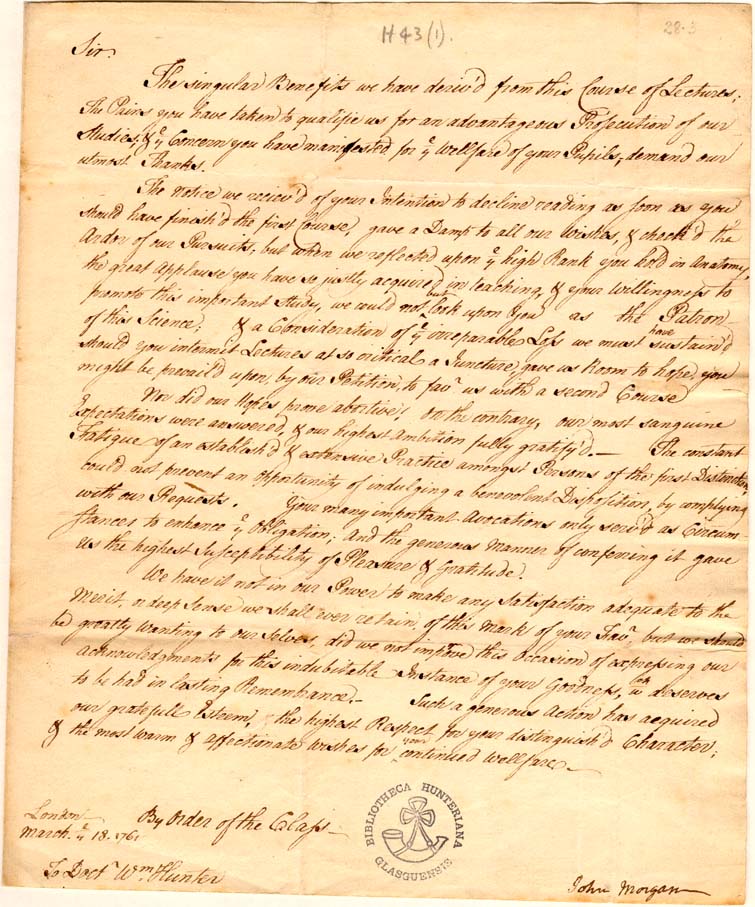 H 43 (1).
28.3
Sir.
The singular Benefits we have deriv'd from this Course of Lectures;
The Pains you have taken to qualifie us for an advantageous Prosecution of our
Studies; & yᵉ Concern you have manifested for yᵉ Wellfare of your Pupils; demand our
utmost Thanks.
The Notice we reciev'd of your Intention to decline reading as soon as you
should have finish'd the first Course, gave a Damp to all our Wishes, & check'd the
Ardor of our Pursuits, but when we reflected upon yᵉ high Rank you hold in Anatomy,
the great Applause you have so justly acquired in teaching, & your Willingness to
promote this important Study, we could not but look upon You as the Patron
of this Science; & a Consideration of yᵉ irreparable Loss we must have sustain'd
should you intermit Lectures at so critical a Juncture, gave us Room to hope, you
might be prevail'd upon, by our Petition, to favʳ us with a second Course
Nor did our Hopes prove abortive! On the contrary, our most sanguine
Expectations were answered, & our highest Ambition fully gratify'd. — The constant
Fatigue of an establish'd & extensive Practice amongst Persons of the first Distinction,
could not prevent an Opportunity of indulging a benevolent Disposition, by complying
with our Requests. Your many important Avocations only serv'd as Circum-
stances to enhance yᵉ Obligation; And the generous Manner of conferring it gave
us the highest Susceptibility of Pleasure & Gratitude.
We have it not in our Power to make any Satisfaction adequate to the
Merit, or deep Sense we shall ever retain, of this Mark of your Favʳ but we should
be greatly wanting to our Selves, did we not improve this Occasion of expressing our
acknowledgments for this indubitable Instance of your Goodness, wᶜʰ deserves
to be had in lasting Remembrance. — Such a generous Action has acquired
our gratefull Esteem, the highest Respect for your distinguish'd Character;
& the most warm & affectionate Wishes for your continued Wellfare —
By Order of the Class —
London
March yᵉ 18. 1761
To Doctʳ Wᵐ Hunter
BIBLIOTHECA HUNTERIANA
GLASGUENSIS
John Morgan